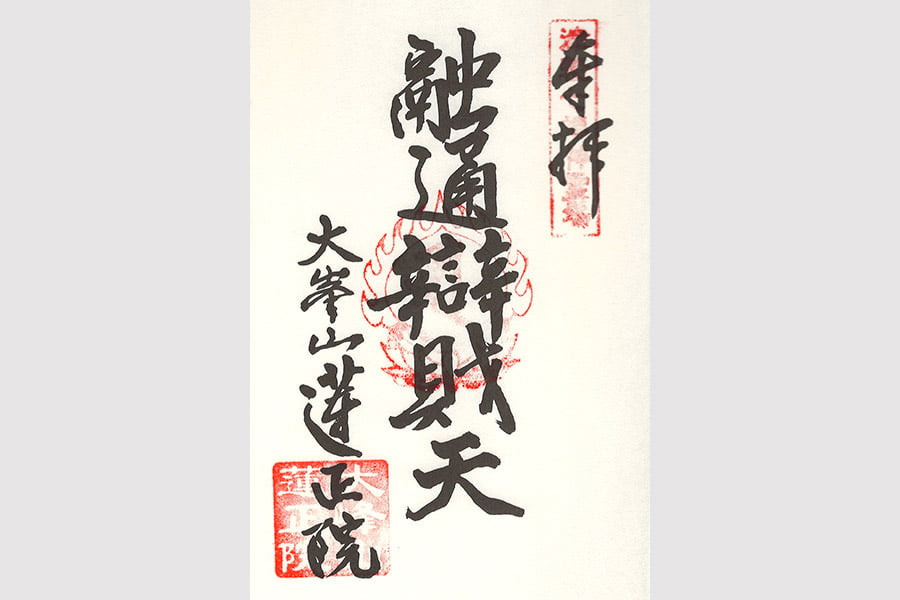 奉拝
融通辯財天
大峯山蓮正院
大峯山
蓮正院